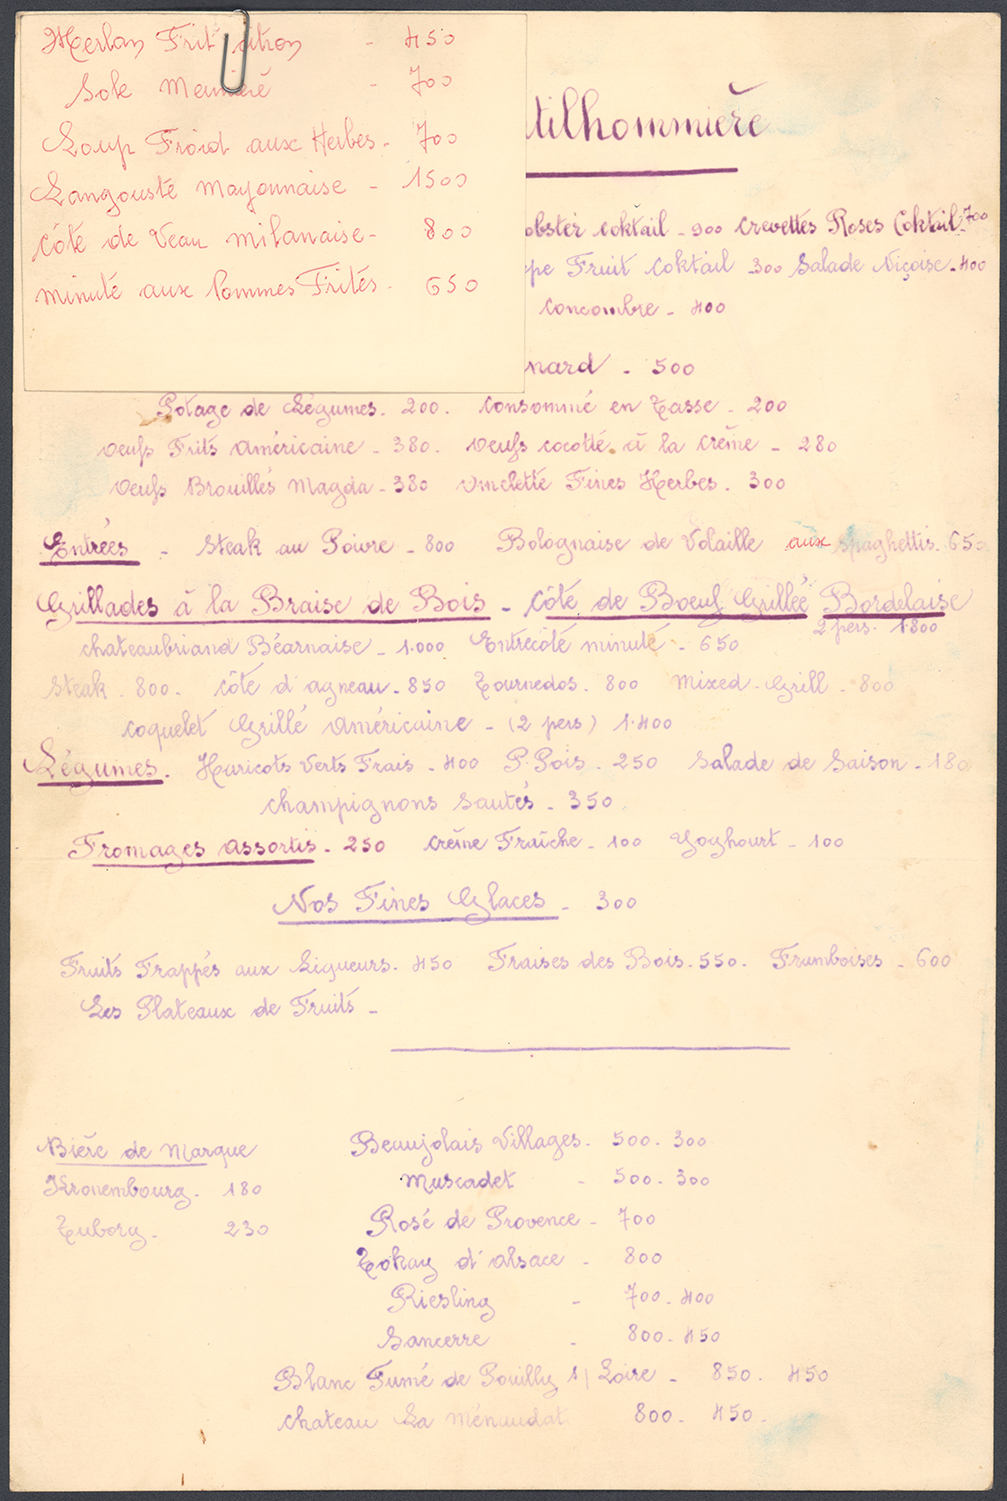 Merlan Frit citron - 450
Sole Meunière - 700
Loup Froid aux Herbes - 700
Langouste Mayonnaise - 1500
côte de Veau milanaise - 800
minute aux Pommes Frites - 650
tilhommière
obster coktail - 900 crevettes Roses Coktail - 700
pe Fruit Coktail 300 Salade Niçoise - 400
concombre - 400
nard - 500
Potage de Légumes - 200. Consommé en Tasse - 200
Oeufs Frits Américaine - 380. Oeufs cocotte à la crème - 280
Oeufs Brouillés Magda - 380 Omelette Fines Herbes - 300
Entrées - Steak au Poivre - 800 Bolognaise de Volaille aux spaghettis - 650
Grillades à la Braise de Bois - Côte de Boeuf Grillée Bordelaise
2 pers. 1.800
chateaubriand Béarnaise - 1.000 Entrecôte minute - 650
Steak - 800 - côte d'agneau - 850 Tournedos - 800 Mixed-Grill - 800
coquelet Grillé Américaine - (2 pers) 1.400
Légumes - Haricots Verts Frais - 400 P. Pois - 250 Salade de Saison - 180
champignons Sautés - 350
Fromages assortis - 250 crème Fraîche - 100 Yoghourt - 100
Nos Fines Glaces - 300
Fruits Frappés aux Liqueurs - 450 Fraises des Bois - 550. Framboises - 600
Les Plateaux de Fruits -
Bière de Marque
Kronembourg - 180
Tuborg - 230
Beaujolais Villages - 500 - 300
Muscadet - 500 - 300
Rosé de Provence - 700
Tokay d'alsace - 800
Riesling - 700 - 400
Sancerre - 800 - 450
Blanc Fumé de Pouilly s/ Loire - 850 - 450
chateau La Ménaudat 800 - 450 -